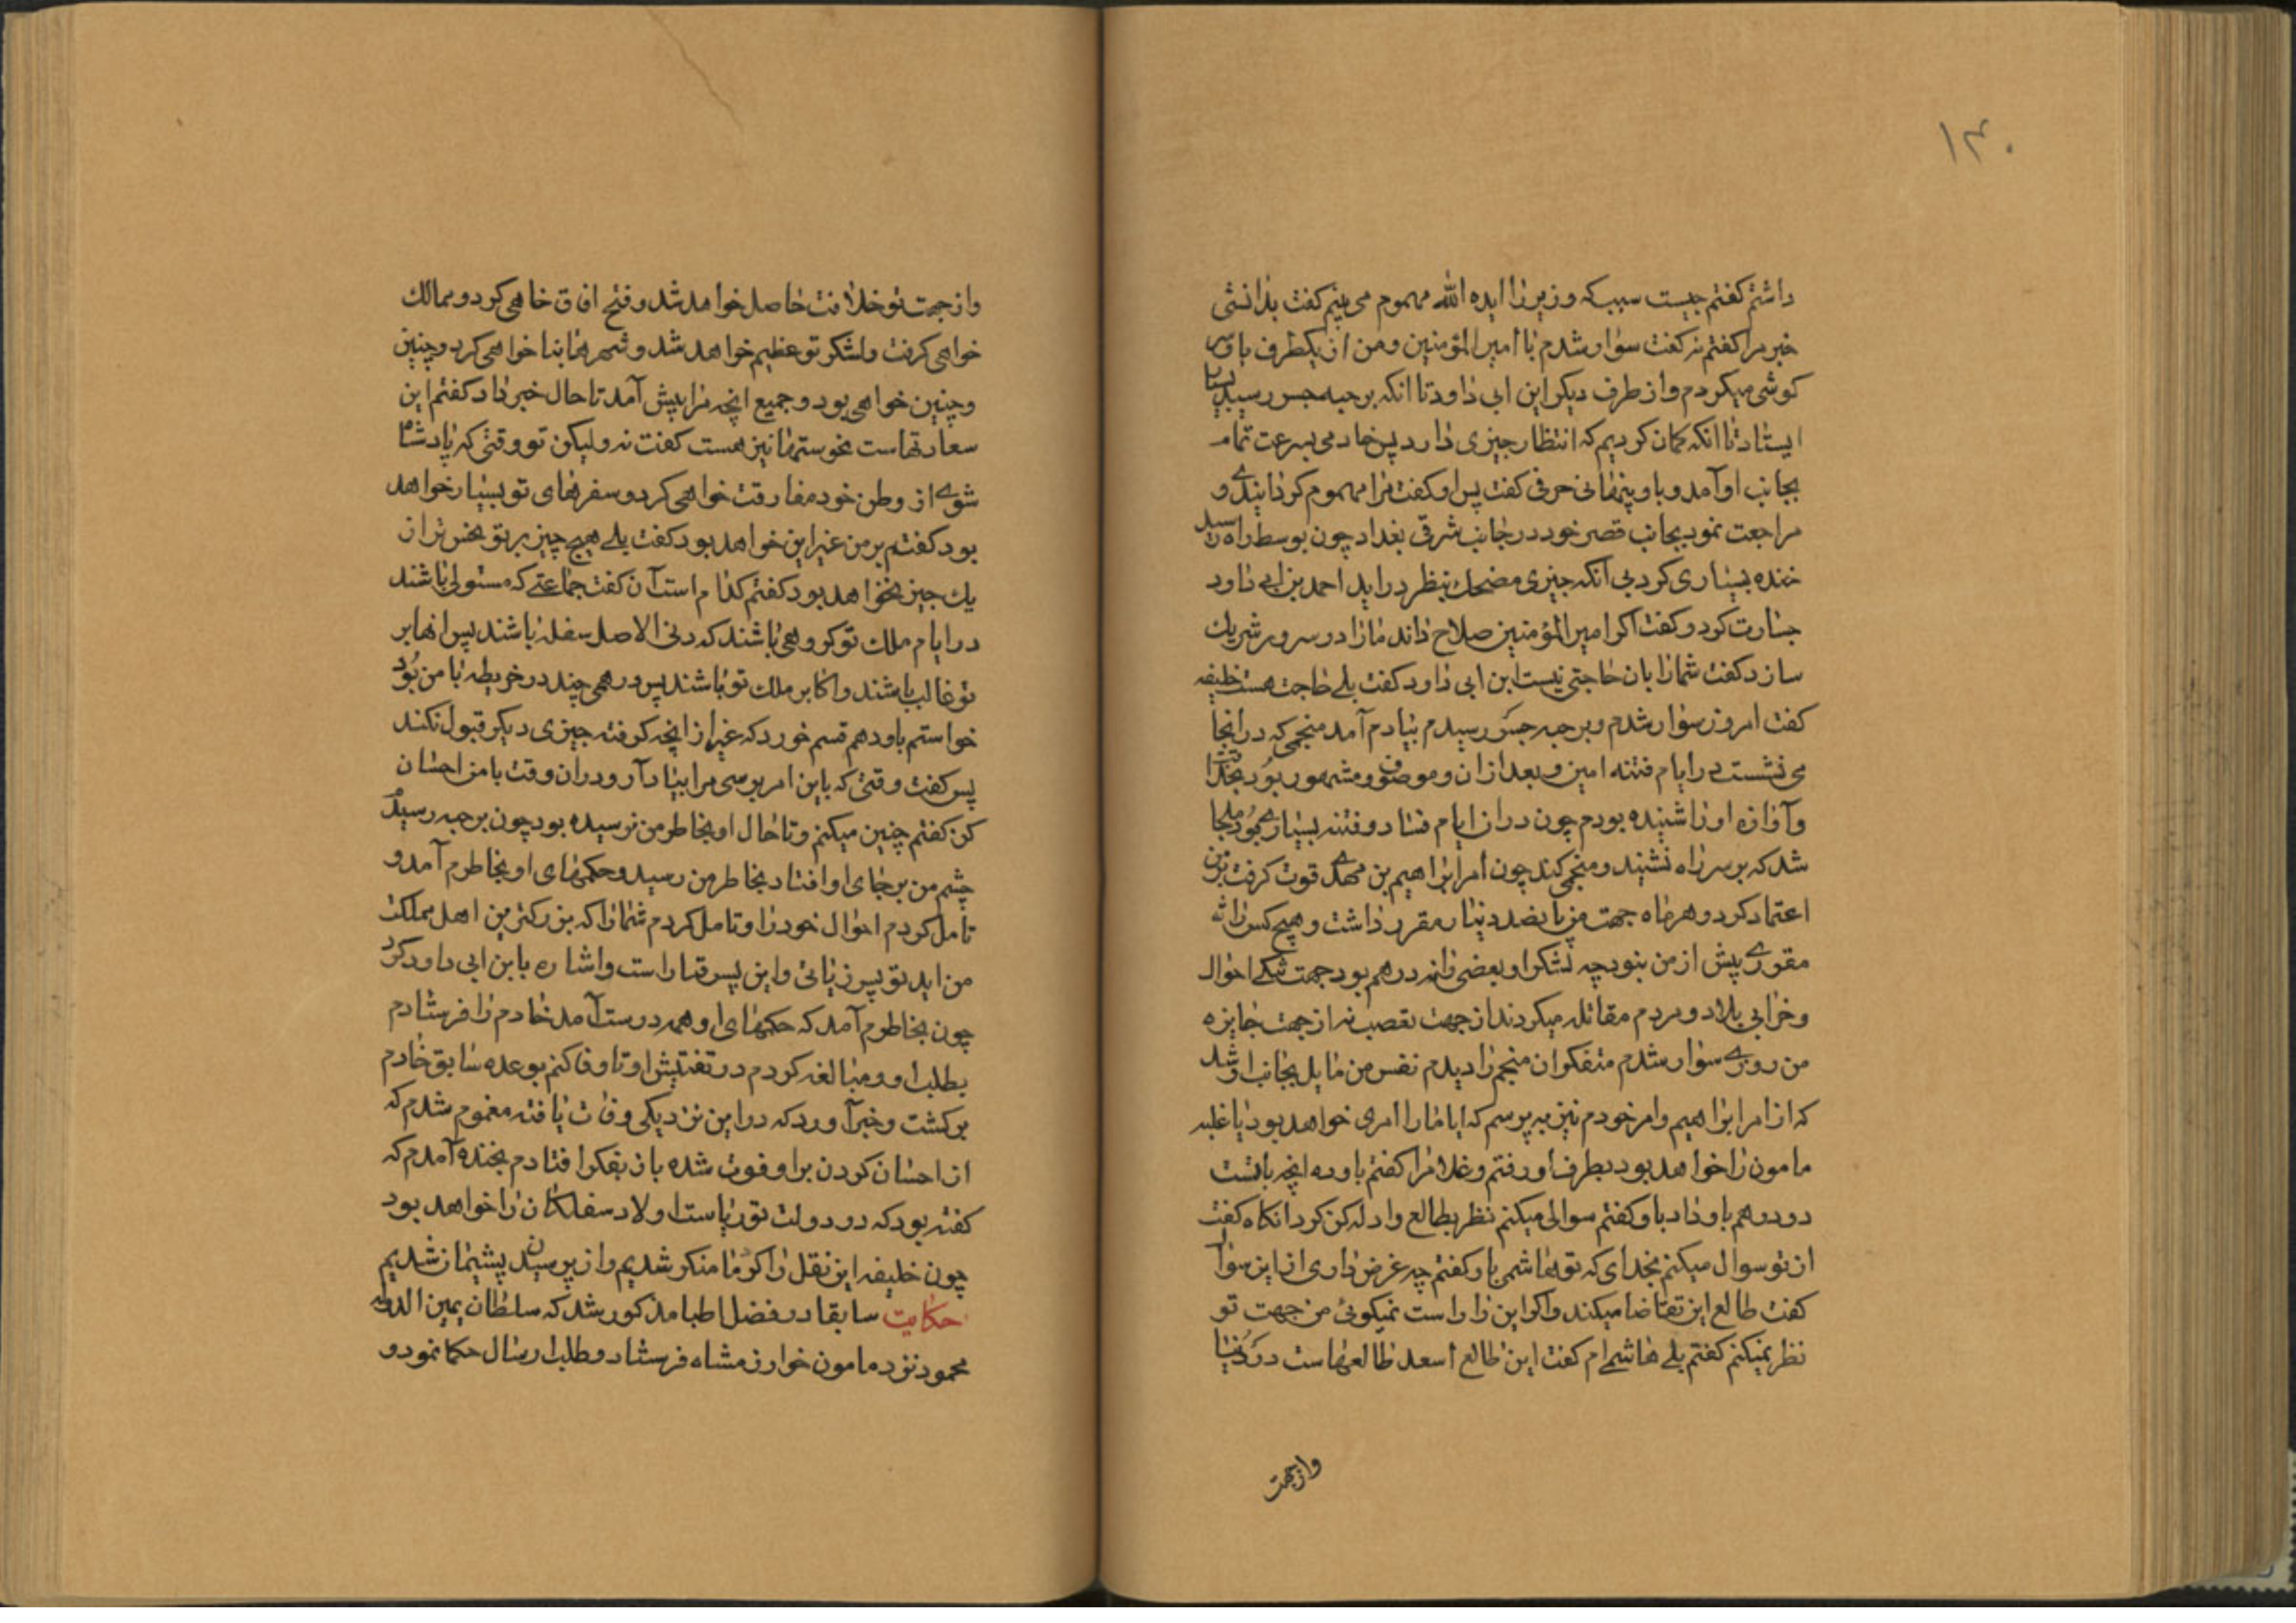 ۱۳۰
داشتم کفتم چیست سبب که وزیر را ایده الله مهموم می بینم کفت بدانشی
خبر مرا کفتم نه کفت سوار شدم با امیر المؤمنین و من از یکطرف باو سر
کوشی میکردم و از طرف دیکر ابن ابی داود تا انکه برحبه جسر رسید بسیار
ایستاد تا انکه کمان کردیم که انتظار چیزی دارد پس خادمی بسرعت تمام
بجانب او آمد و باو پنهانی حرفی کفت پس او کفت مرا مهموم کردانیدی و
مراجعت نمود بجانب قصر خود در جانب شرقی بغداد چون بوسط راه رسید
خنده بسیاری کرد بی آنکه چیزی مضحک بنظر دراید احمد بن ابی داود
جسارت کرد و کفت اکر امیر المؤمنین صلاح داند مارا در سرور شریک
سازد کفت شمارا بان حاجتی نیست ابن ابی داود کفت بلے حاجت هست خلیفه
کفت امروز سوار شدم و برحبه جسر رسیدم بیادم آمد منجمی که درانجا
می نشست در ایام فتنه امین و بعد ازان و موصوف و مشهور بود بحذاقت
و آوازه اورا شنیده بودم چون دران ایام فساد و فتنه بسیاری بود ملجا
شد که بر سر راه نشیند و منجمی کند چون امر ابراهیم بن مهدی قوت کرفت بر من
اعتماد کرد و هر ماه جهت من پانصد دینار مقرر داشت و هیچ کس را نه
مقرری پیش از من بنود چه لشکر او بعضی را نه درهم بود جهت تنکی احوال
و خرابی بلاد و مردم مقاتله میکردند از جهت تعصب نه از جهت جایزه
من روزی سوار شدم متفکر ان منجم را دیدم نفس من مایل بجانب او شد
که از امر ابراهیم و امر خودم نیز به پرسم که ایا مارا امری خواهد بود یا غلبه
مامون را خواهد بود بطرف او رفتم و غلام را کفتم باو ده انچه با تست
دو درهم باو داد باو کفتم سوالی میکنم نظر بطالع و ادله کن کرد انکاه کفت
از تو سوال میکنم بخدای که تو هاشمی باز کفتم چه غرض داری از این سوال
کفت طالع این تقاضا میکند و اکر این را راست نمیکوئی من جهت تو
نظر نمیکنم کفتم بلے هاشمی ام کفت این طالع اسعد طالعهاست در دنیا
واز جهت
و از جهت تو خلافت حاصل خواهد شد و فتح افاق خاهی کرد و ممالک
خواهی کرفت و لشکر تو عظیم خواهد شد و شهرها بنا خواهی کرد و چنین
و چنین خواهی بود و جمیع انچه مرا پیش آمد تا حال خبر داد کفتم این
سعادتهاست نحوستها نیز هست کفت نه ولیکن تو وقتی که پادشاه
شوے از وطن خود مفارقت خواهی کرد و سفرهای تو بسیار خواهد
بود کفتم بر من غیر این خواهد بود کفت بلے هیچ چیز بر تو نحس تر از
یک چیز نخواهد بود کفتم کدام است آن کفت جماعتے که مستولی باشند
در ایام ملک تو کروهی باشند که دنی الاصل سفله باشند پس انها بر
تو غالب باشند و اکابر ملک تو باشند پس درهمی چند در خریطه با من بود
خواستم باو دهم قسم خورد که غیر از انچه کرفته چیزی دیکر قبول نکند
پس کفت وقتی که باین امر برسی مرا بیاد آر و دران وقت با من احسان
کن کفتم چنین میکنم و تا حال او بخاطر من نرسیده بود چون برحبه رسیدم
چشم من بر جای او افتاد بخاطر من رسید و حکمهای او بخاطرم آمد و
تامل کردم احوال خود را و تامل کردم شمارا که بزرکترین اهل مملکت
من اید تو پسر زیاتی و این پسر قیار است و اشاره بابن ابی داود کرد
چون بخاطرم آمد که حکمهای او همه درست آمد خادم را فرستادم
بطلب او و مبالغه کردم در تفتیش او تا وفا کنم بوعده سابق خادم
برکشت و خبر آورد که در این نزدیکی وفات یافته مغموم شدم که
از احسان کردن بر او فوت شده باز بفکر افتادم بخنده آمدم که
کفته بود که در دولت تو ریاست اولاد سفلکان را خواهد بود
چون خلیفه این نقل را کرد ما منکر شدیم و از پرسیدن پشیمان شدیم
حکایت سابقا در فضل اطبا مذکور شد که سلطان یمین الدوله
محمود نزد مامون خوارزمشاه فرستاد و طلب ارسال حکما نمود و